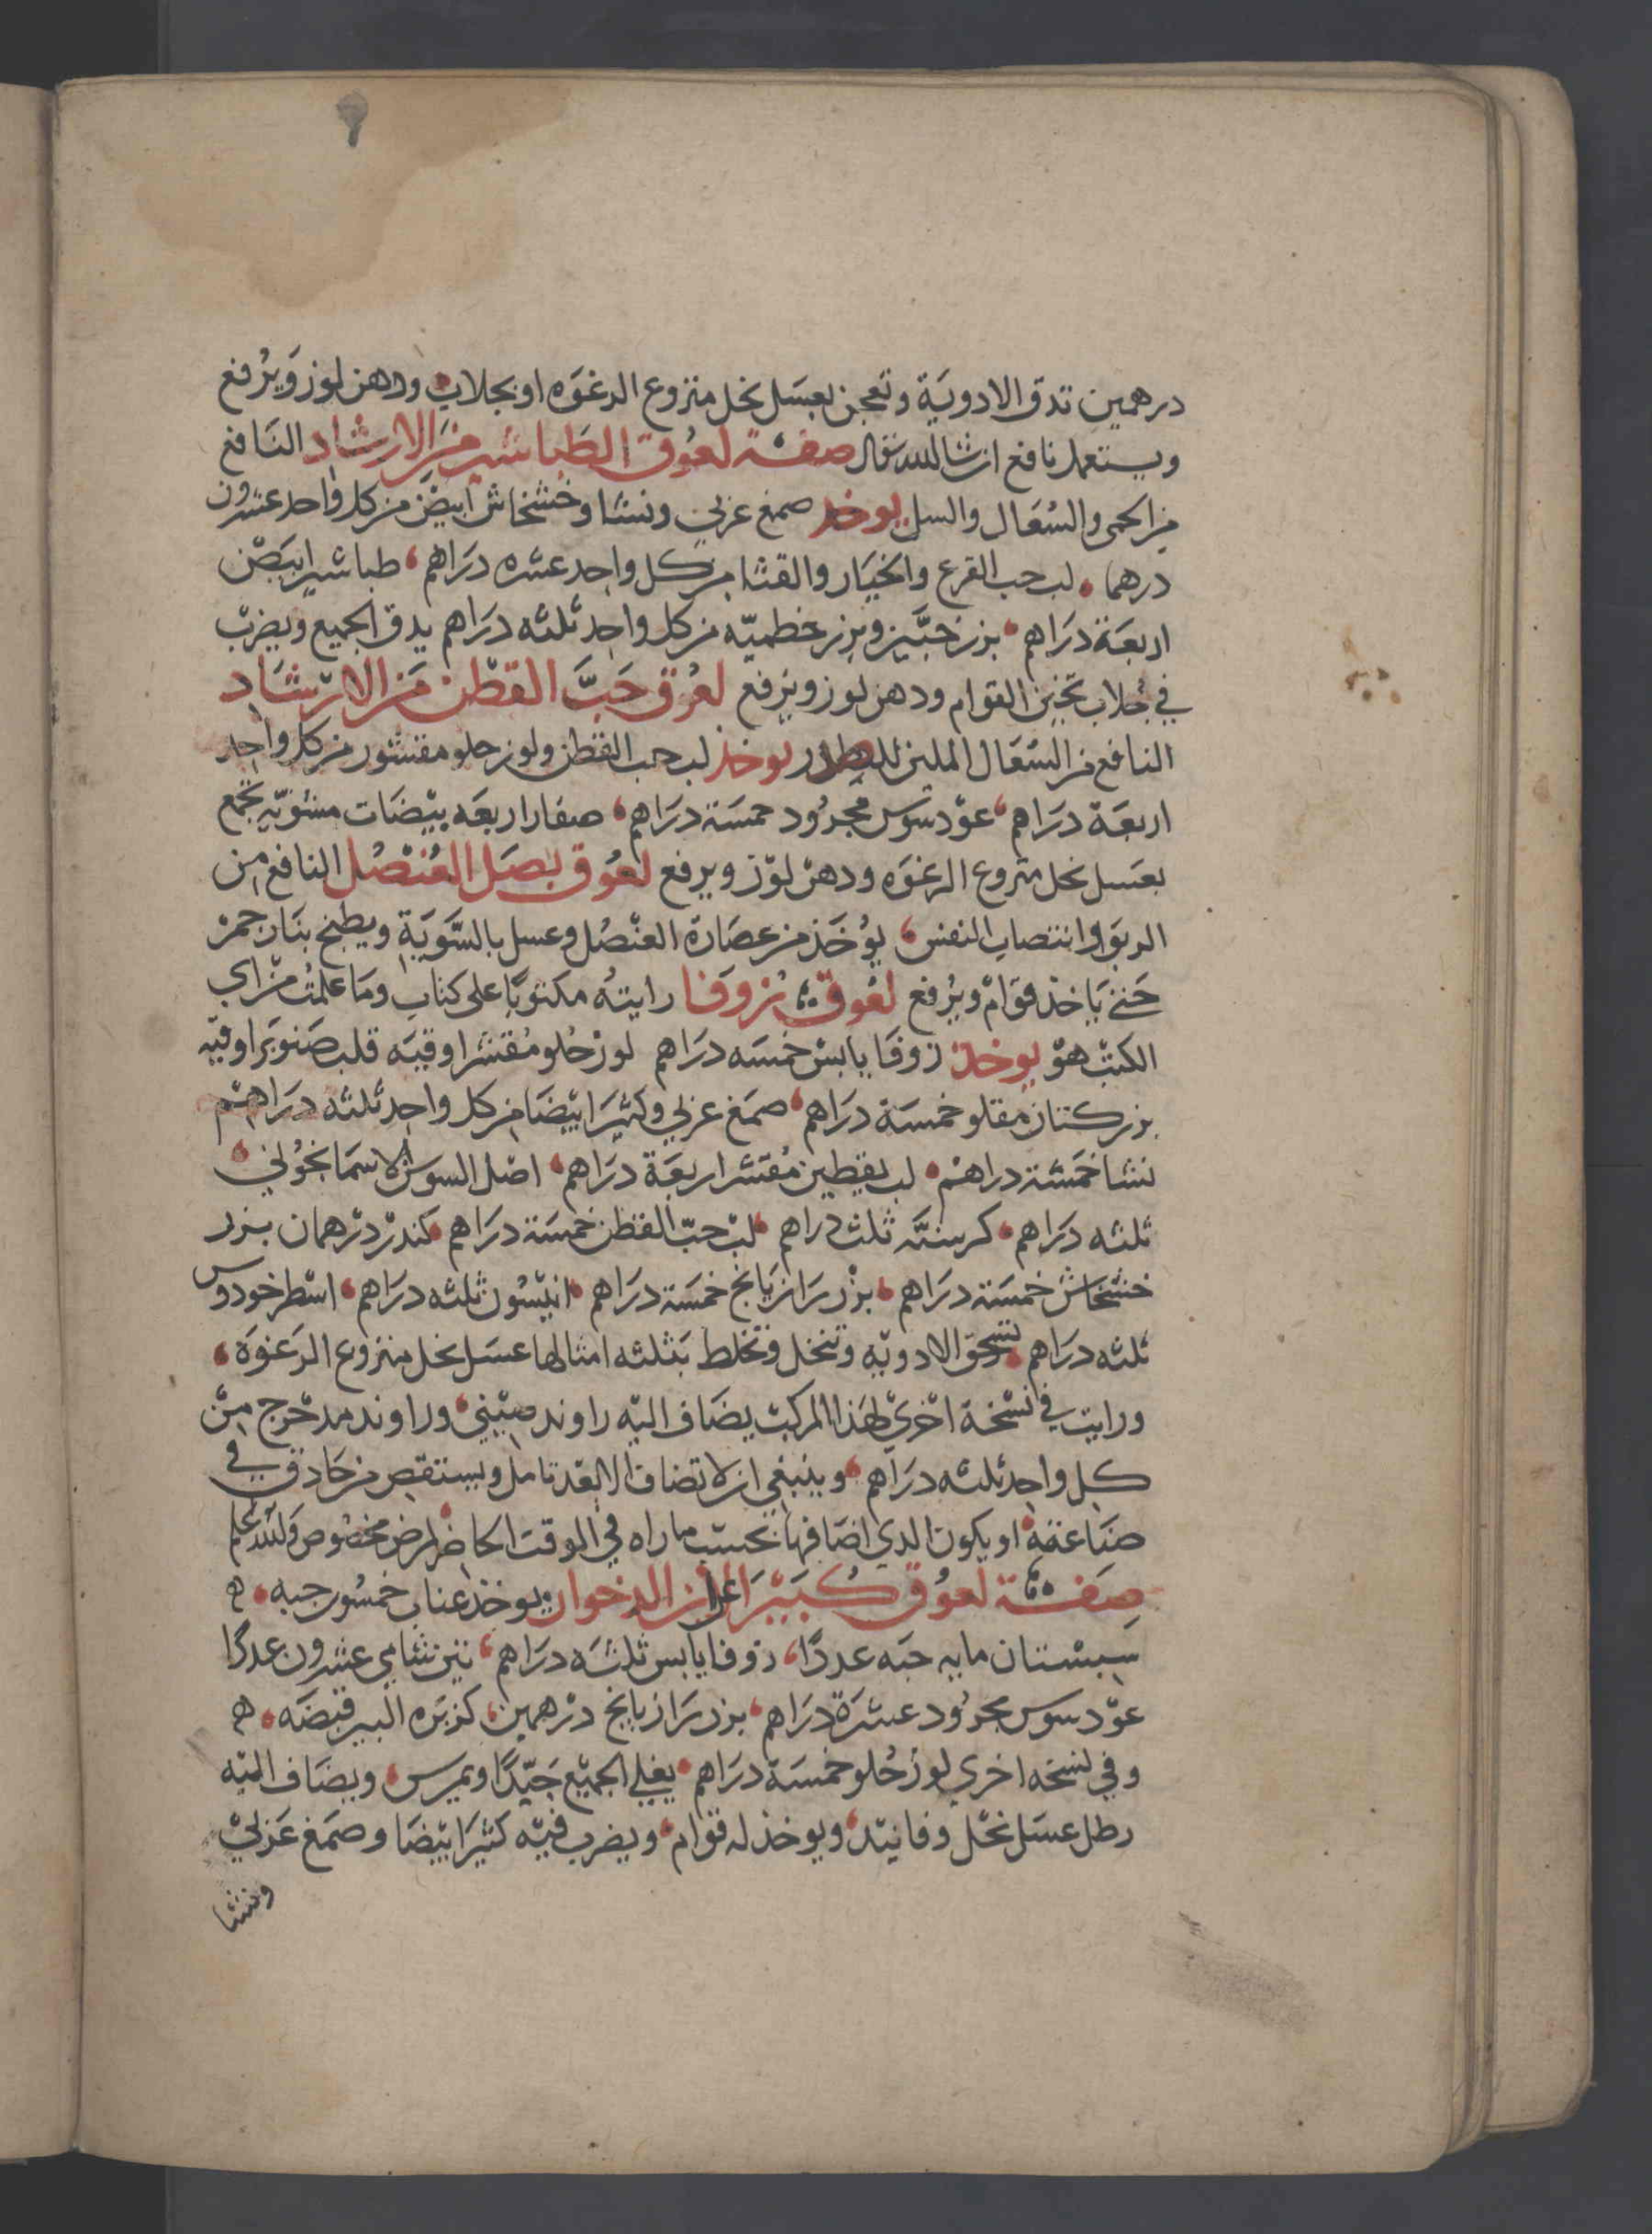 درهمين تدق الادوية وتعجن بعسل نحل منزوع الرغوه او بجلاب ودهن لوز ويرفع
ويستعمل نافع ان شا الله تعالى صفة لعوق الطباشير من الارشاد النافع
من الحمى والسعال والسل يوخذ صمغ عربي ونشا وخشخاش ابيض من كل واحد عشرون
درهما لب حب القرع والخيار والقثا من كل واحد عشره دراهم طباشير ابيض
اربعة دراهم بزر خبيز وبزر خطميه من كل واحد ثلثه دراهم يدق الجميع ويضرب
في جلاب ثخين القوام ودهن لوز ويرفع لعوق حب القطن من الارشاد
النافع من السعال الملين للصدر يوخذ لب حب القطن ولوز حلو مقشور من كل واحد
اربعة دراهم عود سوس مجرود خمسة دراهم صفار اربعه بيضات مشويه يجمع
بعسل نحل منزوع الرغوه ودهن لوز ويرفع لعوق بصل العنصل النافع من
الربو وانتصاب النفس يوخذ من عصارة العنصل وعسل بالسوية ويطبخ بنار جمر
حتى ياخذ قوام ويرفع لعوق زوفا رايته مكتوبا على كتاب وما علمت من اي
الكتب هو يوخذ زوفا يابس خمسه دراهم لوز حلو مقشر اوقيه قلب صنوبر اوقيه
بزر كتان مقلو خمسة دراهم صمغ عربي وكثيرا بيضا من كل واحد ثلثه دراهم
نشا خمسة دراهم لب يقطين مقشر اربعة دراهم اصل السوسن الاسمانجوني
ثلثه دراهم كرسنه ثلث دراهم لب حب القطن خمسة دراهم كندر درهمان بزر
خشخاش خمسة دراهم بزر رازيانج خمسة دراهم انيسون ثلثه دراهم اسطوخودوس
ثلثه دراهم تسحق الادويه وتنخل وتخلط بثلثه امثالها عسل نحل منزوع الرغوة
ورايت في نسخة اخرى لهذا المركب يضاف اليه راوند صيني وراوند مدحرج من
كل واحد ثلثه دراهم وينبغي ان لا تضاف الا بعد تامل ويستقص من حادق في
صناعته او يكون الدي اضافها بحسب ما راه في الوقت الحاضر لمرض مخصوص والله اعلم
صفة لعوق كبير لابن الدخوار يوخذ عناب خمسون حبه ه
سبستان مايه حبه عددا زوفا يابس ثلثه دراهم تين شامي عشرون عددا
عود سوس مجرود عشرة دراهم بزر رازيانج درهمين كزبره البير قبضه ه
وفي نسخه اخرى لوز حلو خمسة دراهم يغلي الجميع جيدا ويمرس ويضاف اليه
رطل عسل نحل وفانيد ويوخذ له قوام ويضرب فيه كثيرا بيضا وصمغ عربي
ونشا